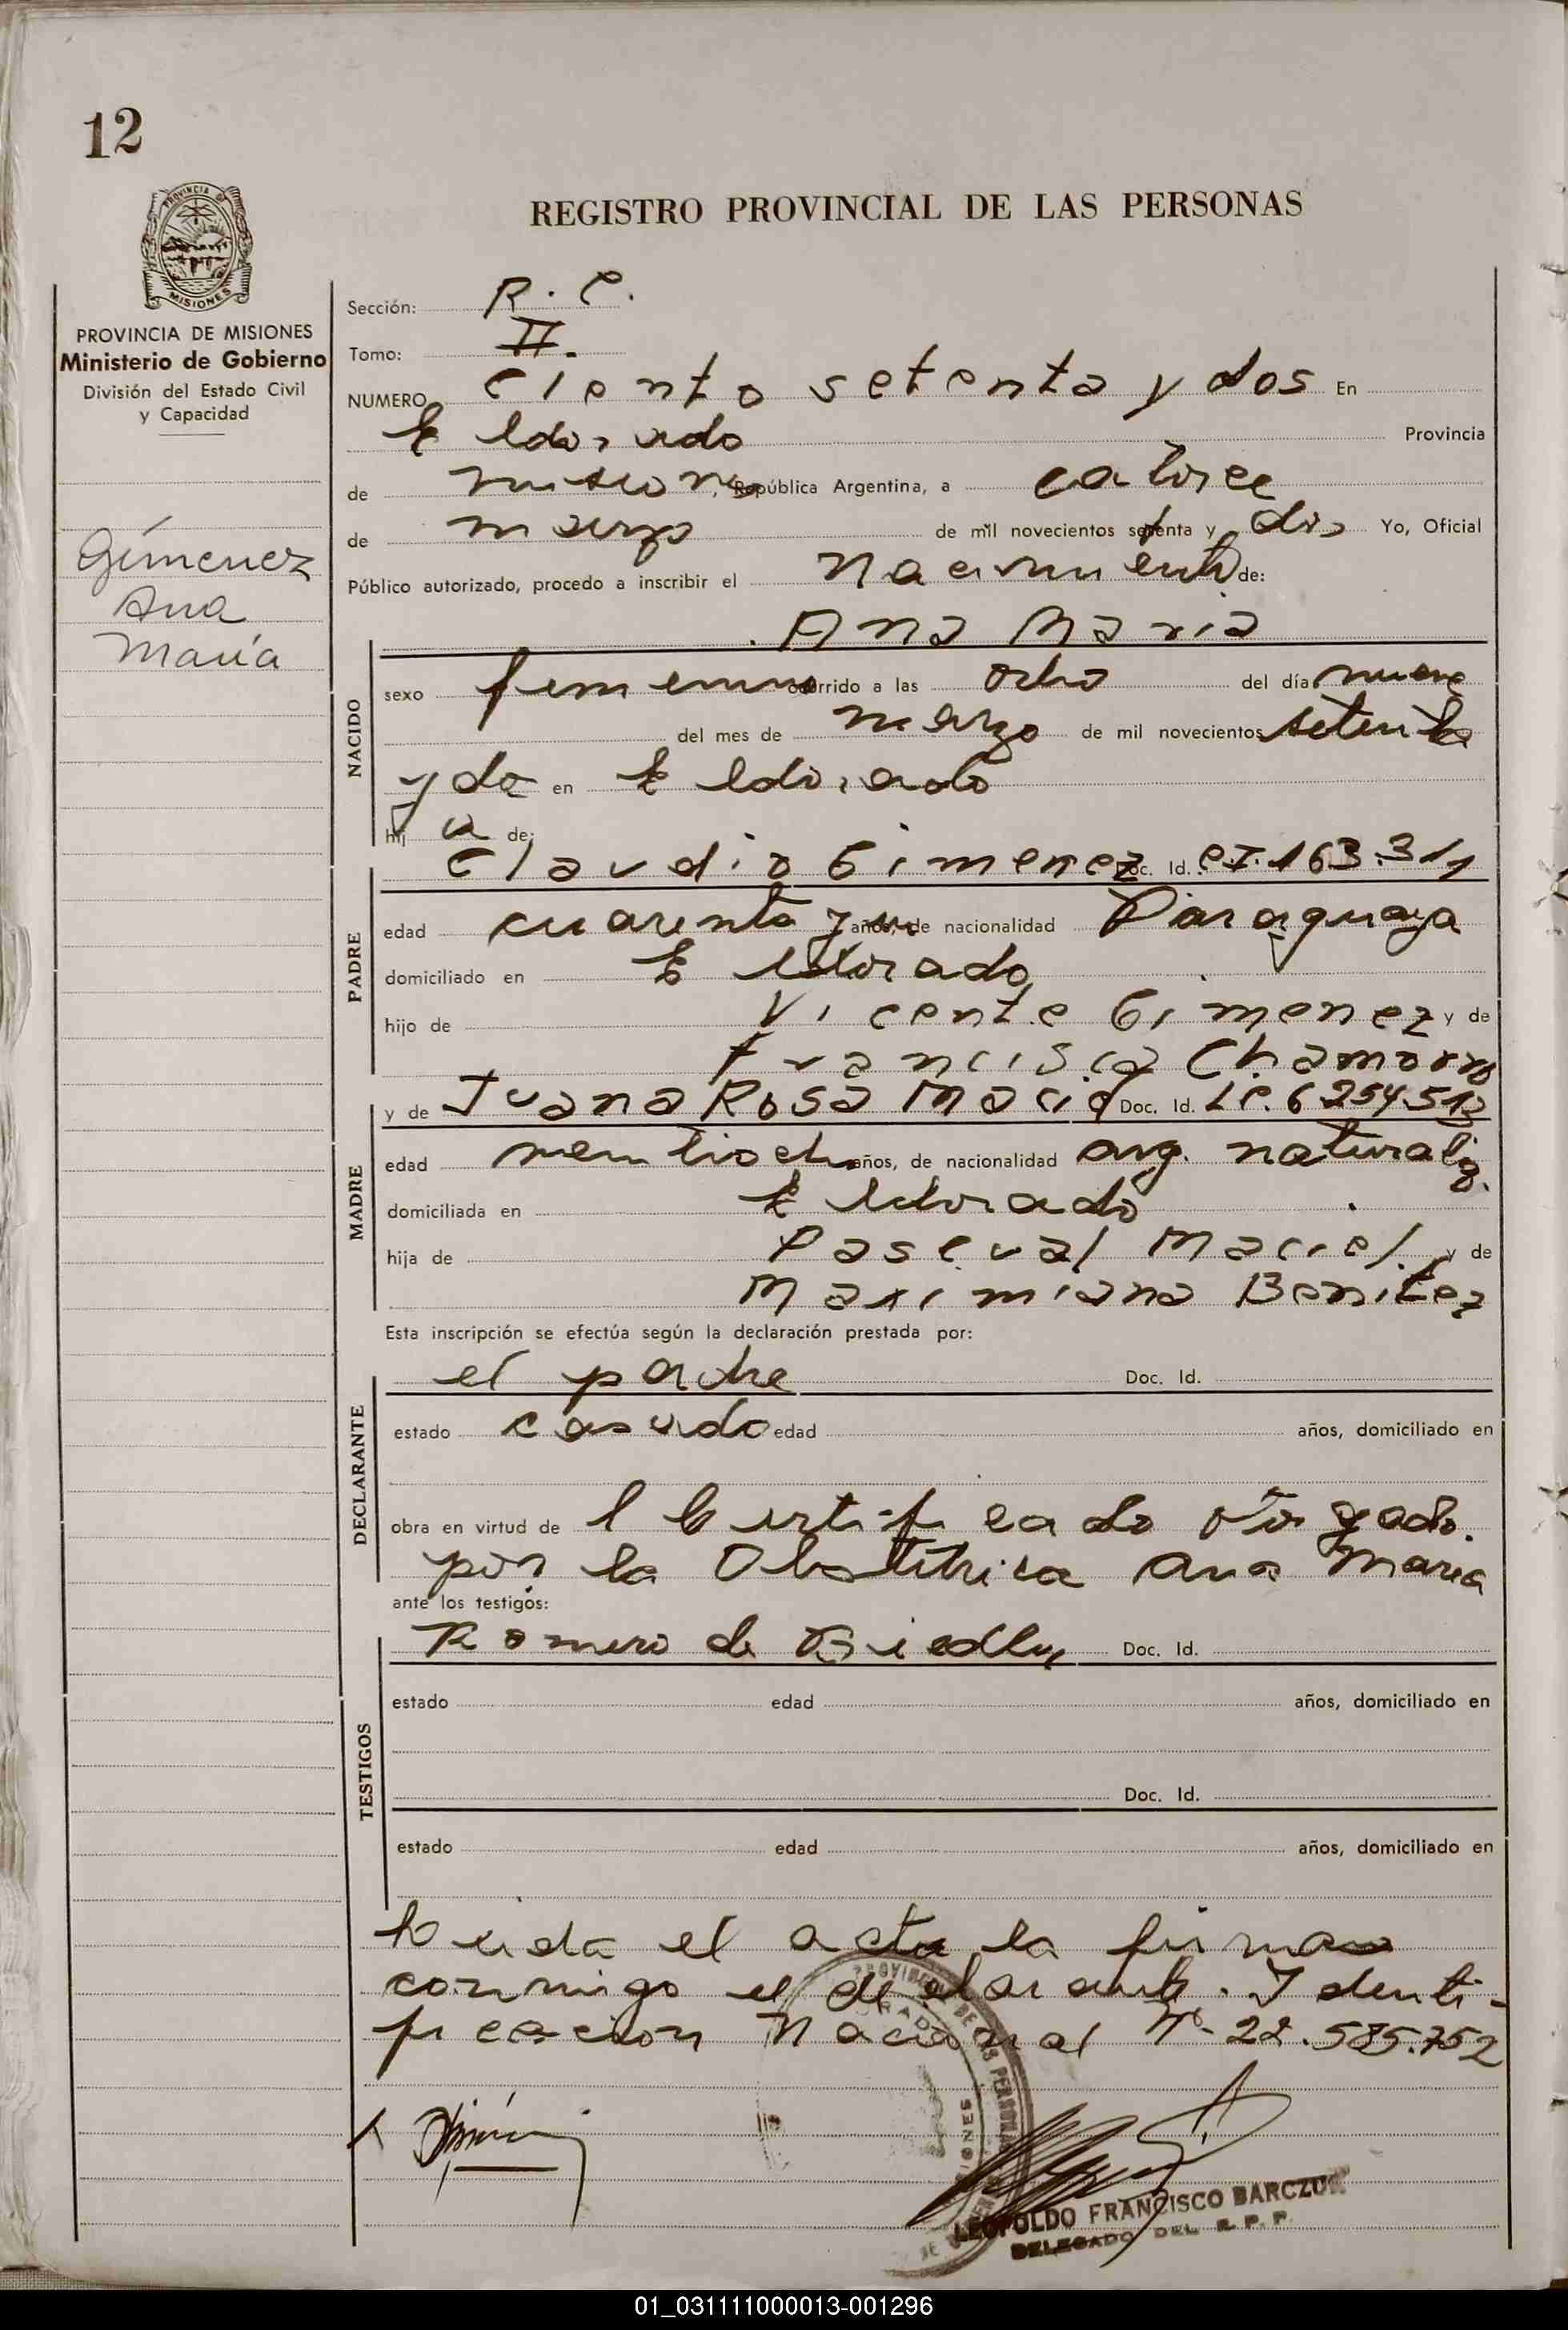 12
REGISTRO PROVINCIAL DE LAS PERSONAS
PROVINCIA DE
MISIONES
PROVINCIA DE MISIONES
Ministerio de Gobierno
División del Estado Civil
y Capacidad
Gímenez
Ana
María
Sección: R. C.
Tomo: II.
NUMERO Ciento setenta y dos En
Eldorado Provincia
de misiones, República Argentina, a catorce
de marzo de mil novecientos setenta y dos Yo, Oficial
Público autorizado, procedo a inscribir el nacimiento de:
Ana Maria
NACIDO
sexo femenino ocurrido a las ocho del día nueve
del mes de marzo de mil novecientos setenta
y dos en Eldorado
hij a de:
Claudio Gimenez Doc. Id. C.I. 163.311
PADRE
edad cuarenta y un años, de nacionalidad Paraguaya
domiciliado en Eldorado
hijo de Vicente Gimenez y de
Francisca Chamorro
y de Juana Rosa Maciel Doc. Id. L.C. 6254512
MADRE
edad veintiocho años, de nacionalidad arg. naturaliz.
domiciliada en Eldorado
hija de Pascual Maciel y de
Maximiana Benitez
Esta inscripción se efectúa según la declaración prestada por:
el padre Doc. Id.
DECLARANTE
estado casado edad años, domiciliado en
obra en virtud de l Certificado otorgado
por la Obstétrica Ana Maria
ante los testigos:
Romero de Doc. Id.
TESTIGOS
estado edad años, domiciliado en
Doc. Id.
estado edad años, domiciliado en
Leida el acta la firma
conmigo el declarante. Identi-
ficacion Nacional Nº 22.585.752
LEOPOLDO FRANCISCO BARCZUK
DELEGADO DEL R. P. P.
01_031111000013-001296